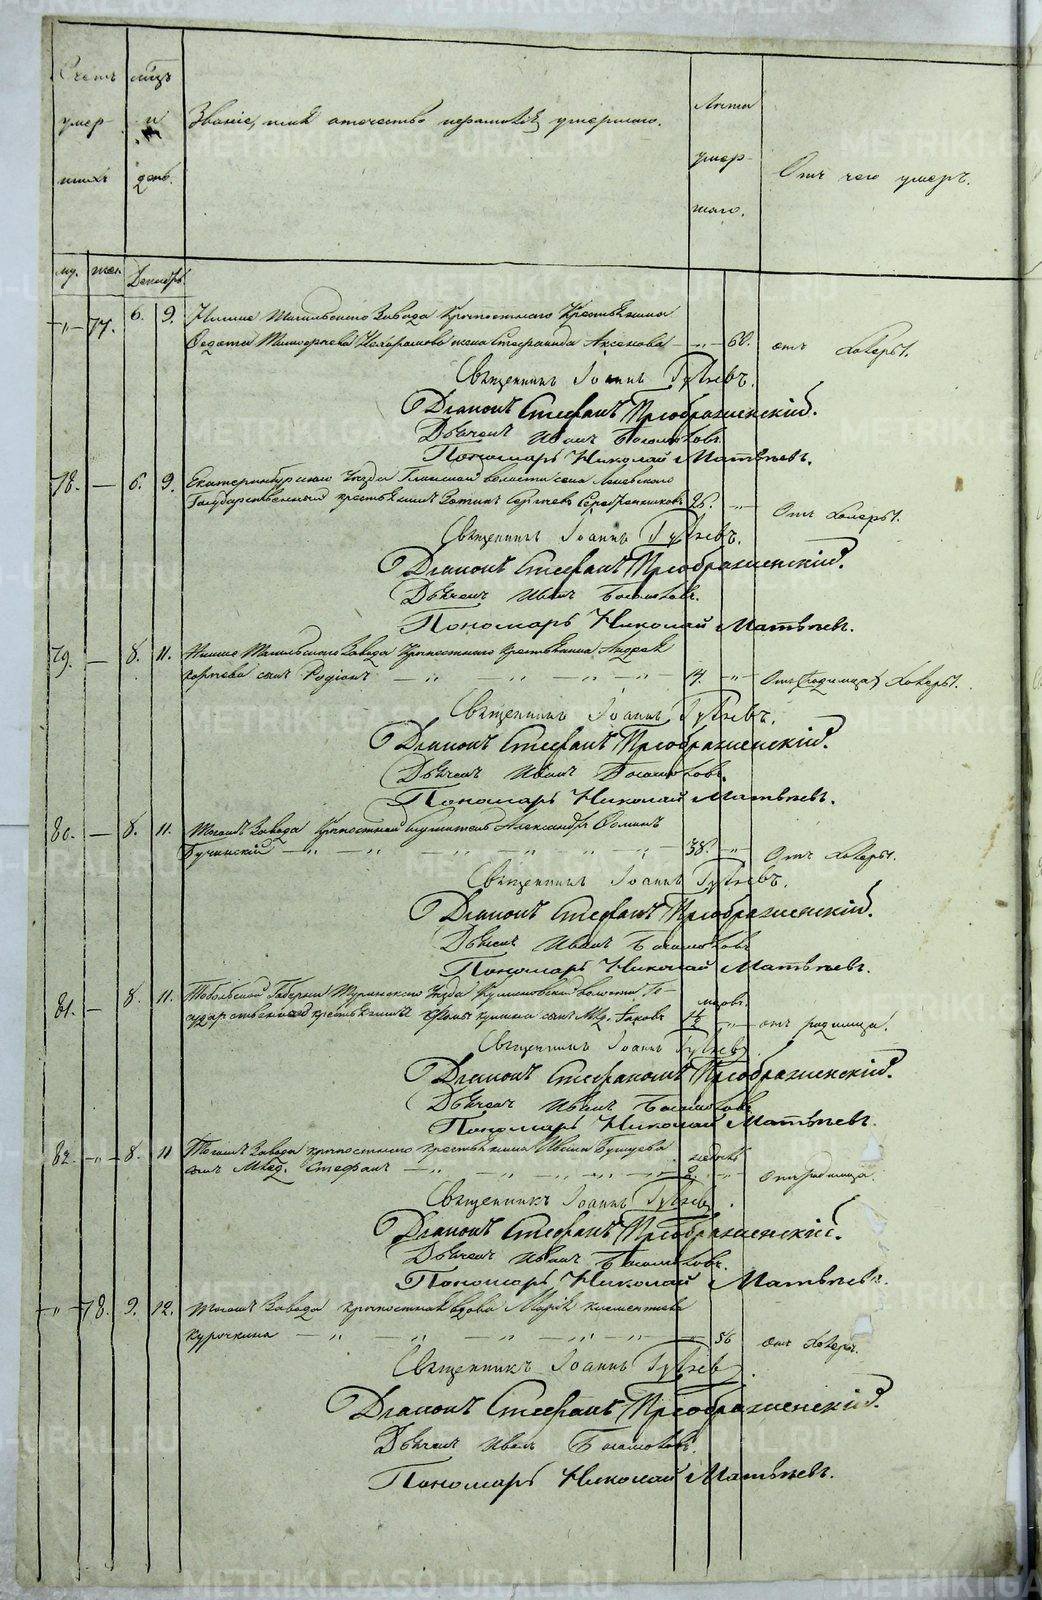 METRIKI.GASO-URAL.RU
Счетъ умершихъ
мѣсяцъ и день.
Званіе, имя отечество и фамилія умершаго.
Лета умершаго.
Отъ чего умеръ.
му. жен. Декабрь
— „ — 77. 6. 9. Нижне Тагильскаго Завода Крѣпостнаго Крестьянина
жена Стефанида Аксенова — „ — 60. отъ Холеры.
Священникъ Іоаннъ
Діаконъ Стефанъ Преображенскій.
Дьячекъ Иванъ Богомоловъ.
Пономарь Николай Матвѣевъ.
78. — 6. 9. Екатеринбургскаго Уѣзда волости села
Государственный крестьянинъ Сергѣевъ Серебренниковъ 26. — „ — Отъ Холеры.
Священникъ Іоаннъ
Діаконъ Стефанъ Преображенскій.
Дьячекъ Иванъ Богомоловъ.
Пономарь Николай Матвѣевъ.
79. — 8. 11. Нижне Тагильскаго Завода Крѣпостнаго Крестьянина Андрея
Карпова сынъ Родіонъ — „ — „ — „ — „ — Отъ Холеры.
Священникъ Іоаннъ
Діаконъ Стефанъ Преображенскій.
Дьячекъ Иванъ Богомоловъ.
Пономарь Николай Матвѣевъ.
80. — 8. 11. Тогожъ Завода Крѣпостной служитель Александръ Ѳоминъ
Бучинскій — „ — „ — „ — „ — „ — 38. — „ — Отъ Холеры.
Священникъ Іоаннъ
Діаконъ Стефанъ Преображенскій.
Дьячекъ Иванъ Богомоловъ
Пономарь Николай Матвѣевъ.
81. — 8. 11. Тобольской Губерніи Туринскаго Уѣзда волости Го-
сударственнаго крестьянина сынъ Мла. Іаковъ 1½ мѣсов. — „ — отъ родимца.
Священникъ Іоаннъ
Діаконъ Стефанъ Преображенскій.
Дьячекъ Иванъ Богомоловъ
Пономарь Николай Матвѣевъ.
82. — „ — 8. 11 Тогожъ Завода крѣпостнаго крестьянина Ивана
сынъ Млад. Стефанъ — „ — „ — „ — „ — недѣль Отъ родимца.
Священникъ Іоаннъ
Діаконъ Стефанъ Преображенскій.
Дьячекъ Иванъ Богомоловъ.
Пономарь Николай Матвѣевъ.
— „ — 78. 9. 12. Тогожъ Завода крѣпостная вдова Марія Клементьева
Курочкина — „ — „ — „ — „ — „ — 56 отъ Холеры.
Священникъ Іоаннъ
Діаконъ Стефанъ Преображенскій.
Дьячекъ Иванъ Богомоловъ.
Пономарь Николай Матвѣевъ.
METRIKI.GASO-URAL.RU